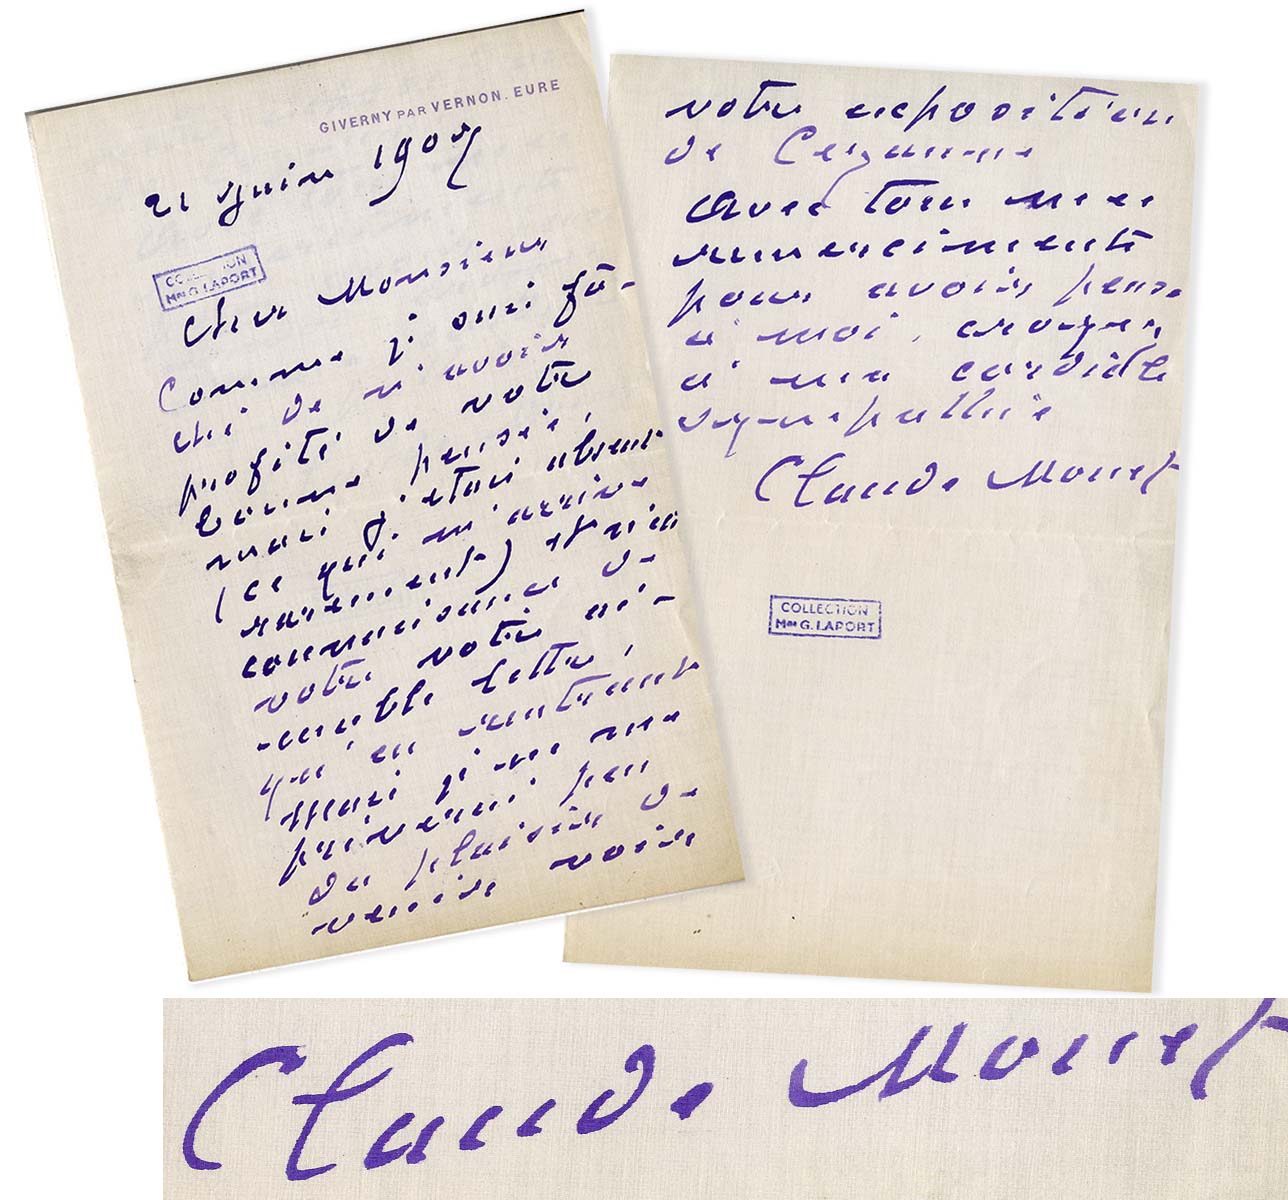 GIVERNY PAR VERNON. EURE
21 juin 1907
COLLECTION
Mme G. LAPORT
Cher Monsieur
Comme j suis fâ-
ché de n'avoir
profité de votre
bonne pensée,
mais j'étais absent
(ce qui m'arrive
rarement) et n'ai
connaissance de
votre votre ai-
mable lettre,
qu'en rentrant
mais je ne me
priverai pas
du plaisir de
venir voir
votre exposition
de Cezanne
avec tous mes
remerciments
pour avoir pensé
à moi, croyez,
à ma cordiale
sympathie
Claude Monet
COLLECTION
Mme G. LAPORT
Claude Monet